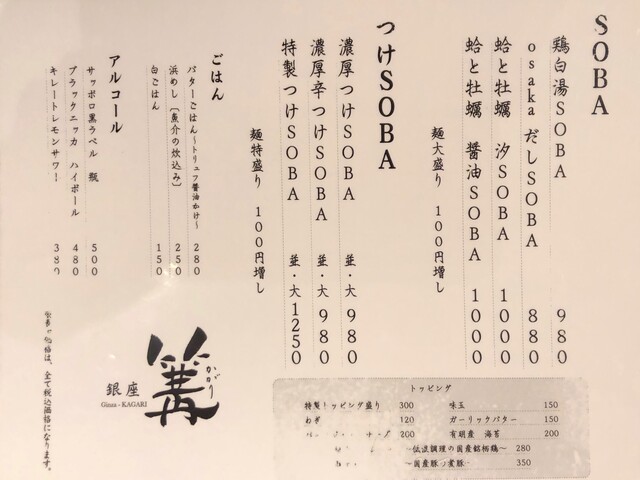 SOBA
鶏白湯SOBA 980
osakaだしSOBA 880
蛤と牡蠣 汐SOBA 1000
蛤と牡蠣 醤油SOBA 1000
麺大盛り 100円増し
つけSOBA
濃厚つけSOBA 並・大 980
濃厚辛つけSOBA 並・大 980
特製つけSOBA 並・大 1250
麺特盛り 100円増し
ごはん
バターごはん〜トリュフ醤油かけ〜 280
浜めし〔魚介の炊込み〕 250
白ごはん 150
アルコール
サッポロ黒ラベル 瓶 500
ブラックニッカ ハイボール 480
キレートレモンサワー 380
トッピング
特製トッピング盛り 300
ねぎ 120
200
〜低温調理の国産銘柄鶏〜 280
〜国産豚の煮豚〜 350
味玉 150
ガーリックバター 150
有明産 海苔 200
篝
かがり
銀座
Ginza - KAGARI
は、全て税込価格になります。